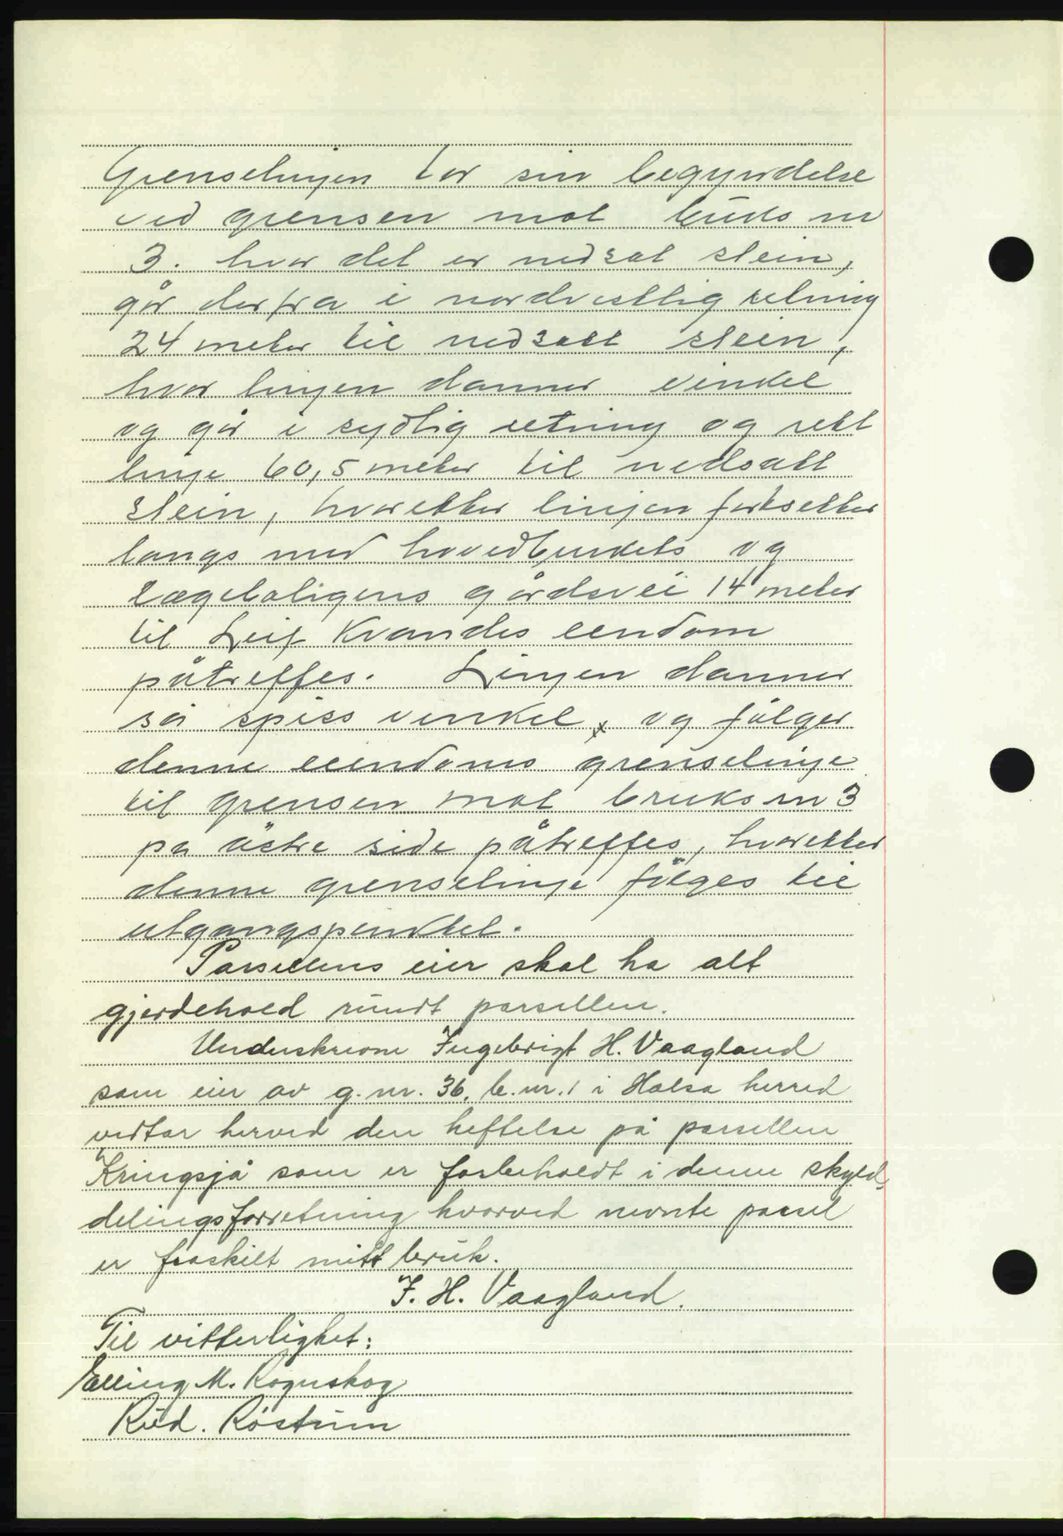 Grenselinjen tar sin begynndelse
ved grensen mot bruks nr
3. hvor det er nedsat stein,
går derfra i nordvestlig retning
24 meter til nedsatt stein,
hvor linjen danner vinkel
og går i sydlig retning og rett
linje 60,5 meter til nedsatt
stein, hvoretter linjen fortsetter
langs med hovedbrukets og
Lægeboligens gårdsvei 14 meter
til Leif Kvandes eendom
påtreffes. Linjen danner
så spiss vinkel, og følger
denne eiendoms grenselinje
til grensen mot bruks nr 3
på østre side påtreffes, hvoretter
denne grenselinje følges til
utgangspunktet.
Parsellens eier skal ha alt
gjerdehold rundt parsellen.
Underskrevne Ingebrigt H. Vaagland
som eier av g.nr. 36, b.nr. 1 i Halsa herred
vedtar herved den heftelse på parsellen
Kringsjå som er forbeholdt i denne skyld-
delingsforretning hvorved nevnte parsel
er fraskilt mitt bruk.
I. H. Vaagland.
Til vitterlighet:
Elling M. Rognskog
Rud. Röstrum